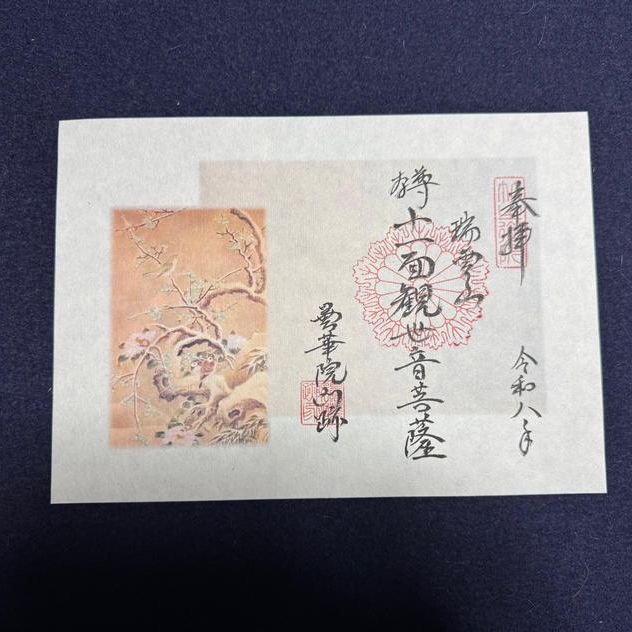 奉拝
令和八年
瑞雲山
本尊
十一面観世音菩薩
曇華院門跡